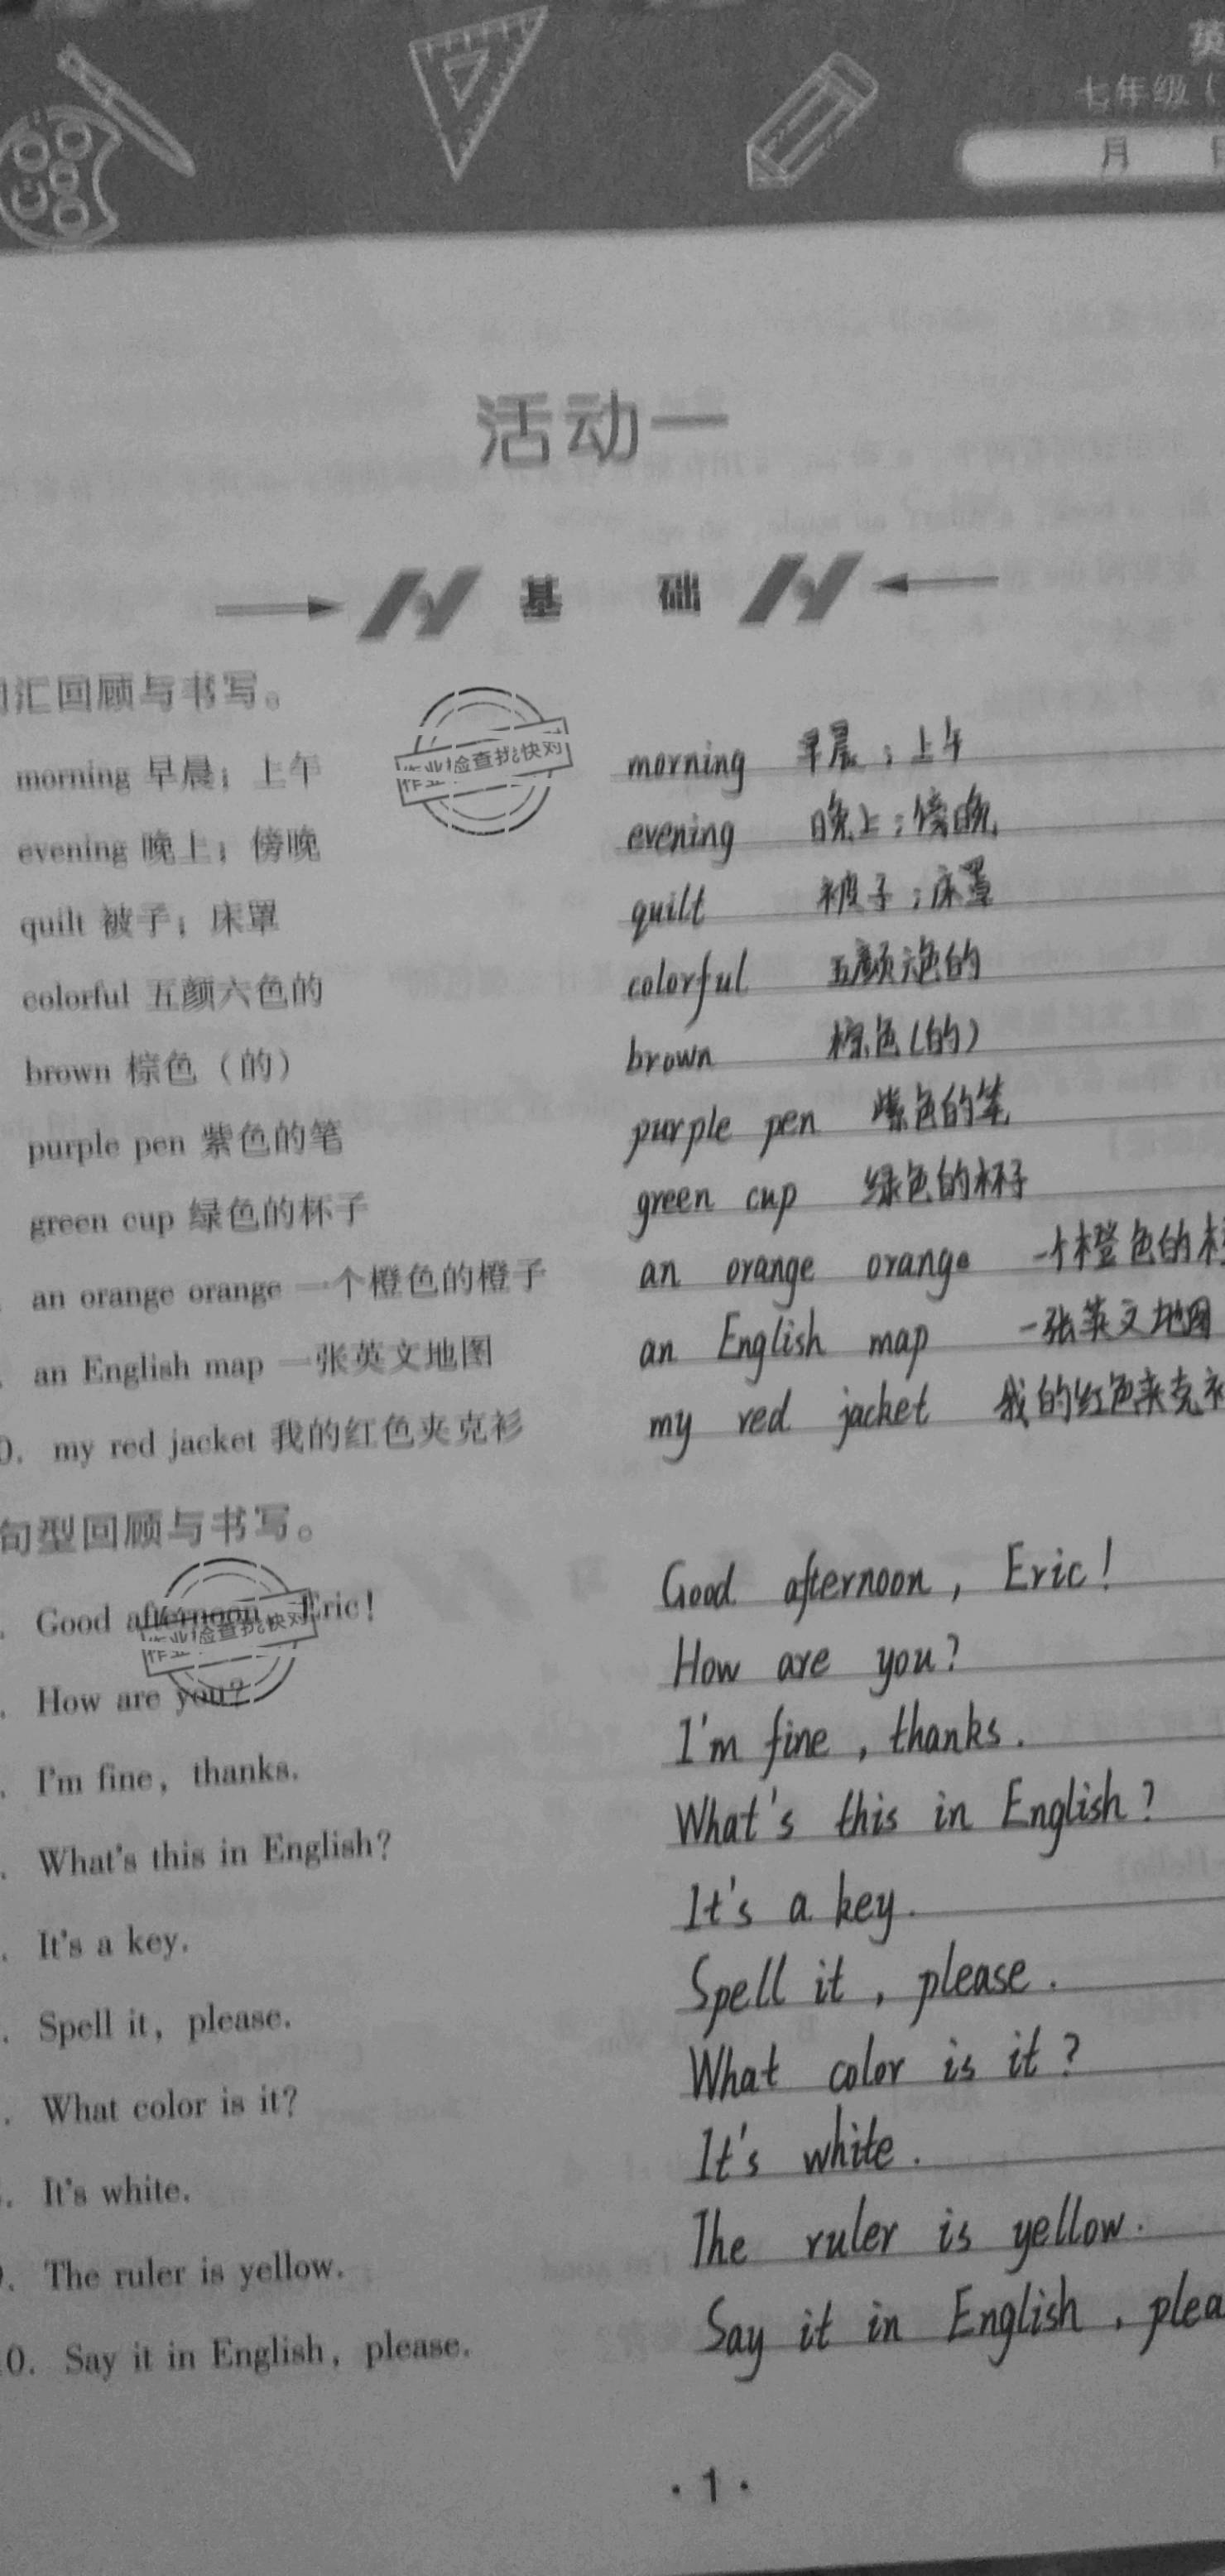 英
七年级（
月
活动一
基 础
汇回顾与书写。
morning 早晨；上午 morning 早晨；上午
evening 晚上；傍晚 evening 晚上；傍晚
quilt 被子；床罩 quilt 被子；床罩
colorful 五颜六色的 colorful 五颜六色的
brown 棕色（的） brown 棕色(的)
purple pen 紫色的笔 purple pen 紫色的笔
green cup 绿色的杯子 green cup 绿色的杯子
an orange orange 一个橙色的橙子 an orange orange 一个橙色的
an English map 一张英文地图 an English map 一张英文地图
0. my red jacket 我的红色夹克衫 my red jacket 我的红色夹克
句型回顾与书写。
. Good afternoon, Eric! Good afternoon, Eric!
. How are you? How are you?
. I'm fine, thanks. I'm fine, thanks.
. What's this in English? What's this in English?
. It's a key. It's a key.
. Spell it, please. Spell it, please.
. What color is it? What color is it?
. It's white. It's white.
. The ruler is yellow. The ruler is yellow.
10. Say it in English, please. Say it in English, plea
·1·
作业检查找快对
作业检查找快对